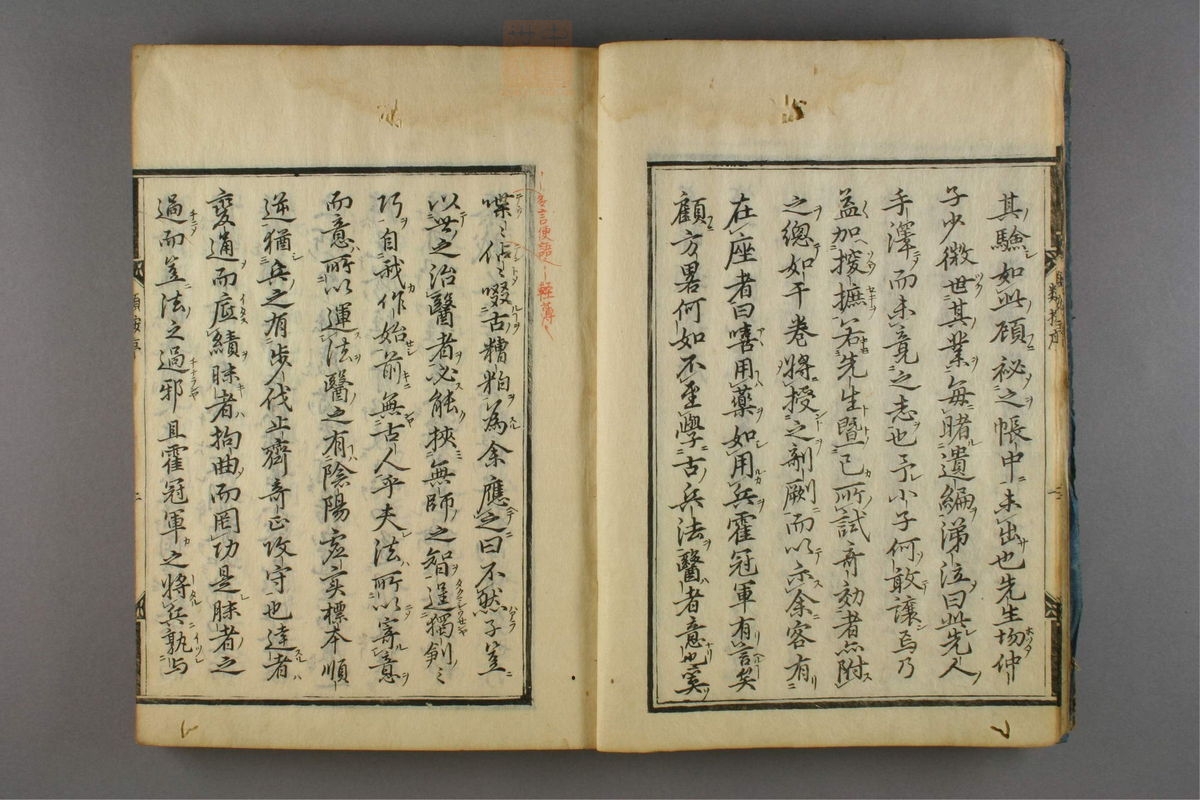 其驗如此顧祕之帳中未出也先生場仲
子少微世其業每睹遺編涕泣曰此先人
手澤而未竟之志也予小子何敢讓焉乃
益加捘摭若先生曁己所試奇効者亦附
之總如干卷將授之剞劂而以示余客有
在座者曰嘻用藥如用兵霍冠軍有言矣
顧方畧何如不至學古兵法醫者意也奚
喋〻佔〻啜古糟粕為余應之曰不然子豈
以世之治醫者必能挾無師之智逞獨創之
巧自我作始前無古人乎夫法所以寄意
而意所以運法醫之有陰陽虛實標本順
逆猶兵之有步伐止齊奇正攻守也達者
變通而底績昧者拘曲而罔功是昧者之
過而豈法之過邪且霍冠軍之將兵孰与
多言便語